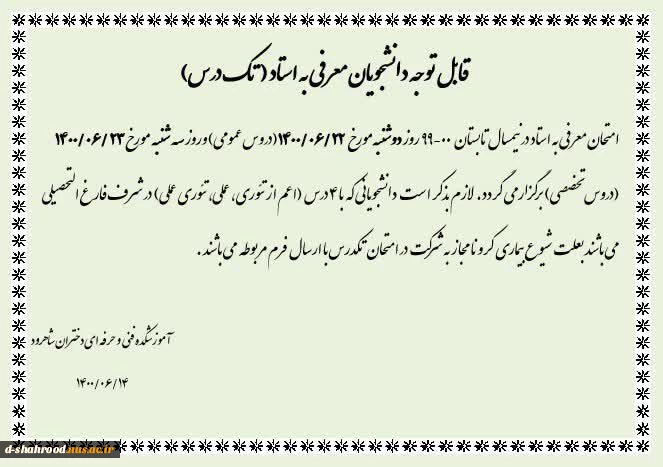 قابل توجه دانشجویان معرفی به استاد (تک درس)
امتحان معرفی به استاد در نیمسال تابستان ۰۰-۹۹ روز دوشنبه مورخ ۱۴۰۰/۰۶/۲۲ (دروس عمومی) و روز سه شنبه مورخ ۱۴۰۰/۰۶/۲۳
(دروس تخصصی) برگزار می گردد. لازم بذکر است دانشجویانی که با ۴ درس (اعم از تئوری، عملی، تئوری عملی) در شرف فارغ التحصیلی
می باشند بعلت شیوع بیماری کرونا مجاز به شرکت در امتحان تکدرس با ارسال فرم مربوطه می باشند .
آموزشکده فنی و حرفه ای دختران شاهرود
۱۴۰۰/۰۶/۱۴
d-shahrood.nus.ac.ir